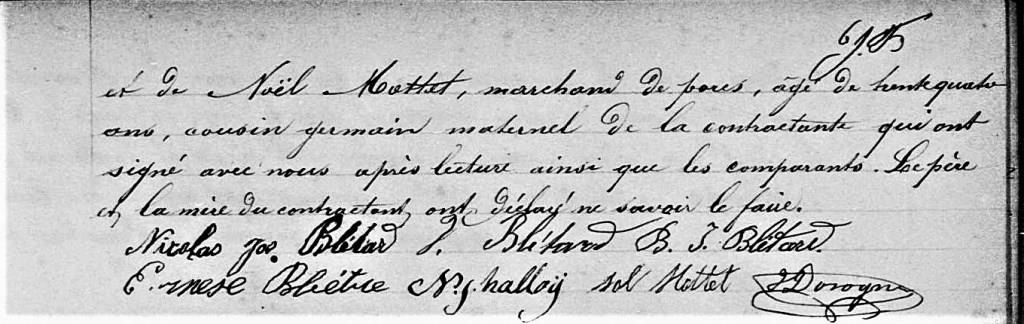 et de Noël Mottet, marchand de porcs, âgé de trente quatre
ans, cousin germain maternel de la contractante qui ont
signé avec nous après lecture ainsi que les comparants. Le père
et la mère du contractant, ont déclaré ne savoir le faire.
Nicolas Jos. Blétard J. Blétard B. J. Blétard
Ernese Blétire N. J. halloÿ Mottet